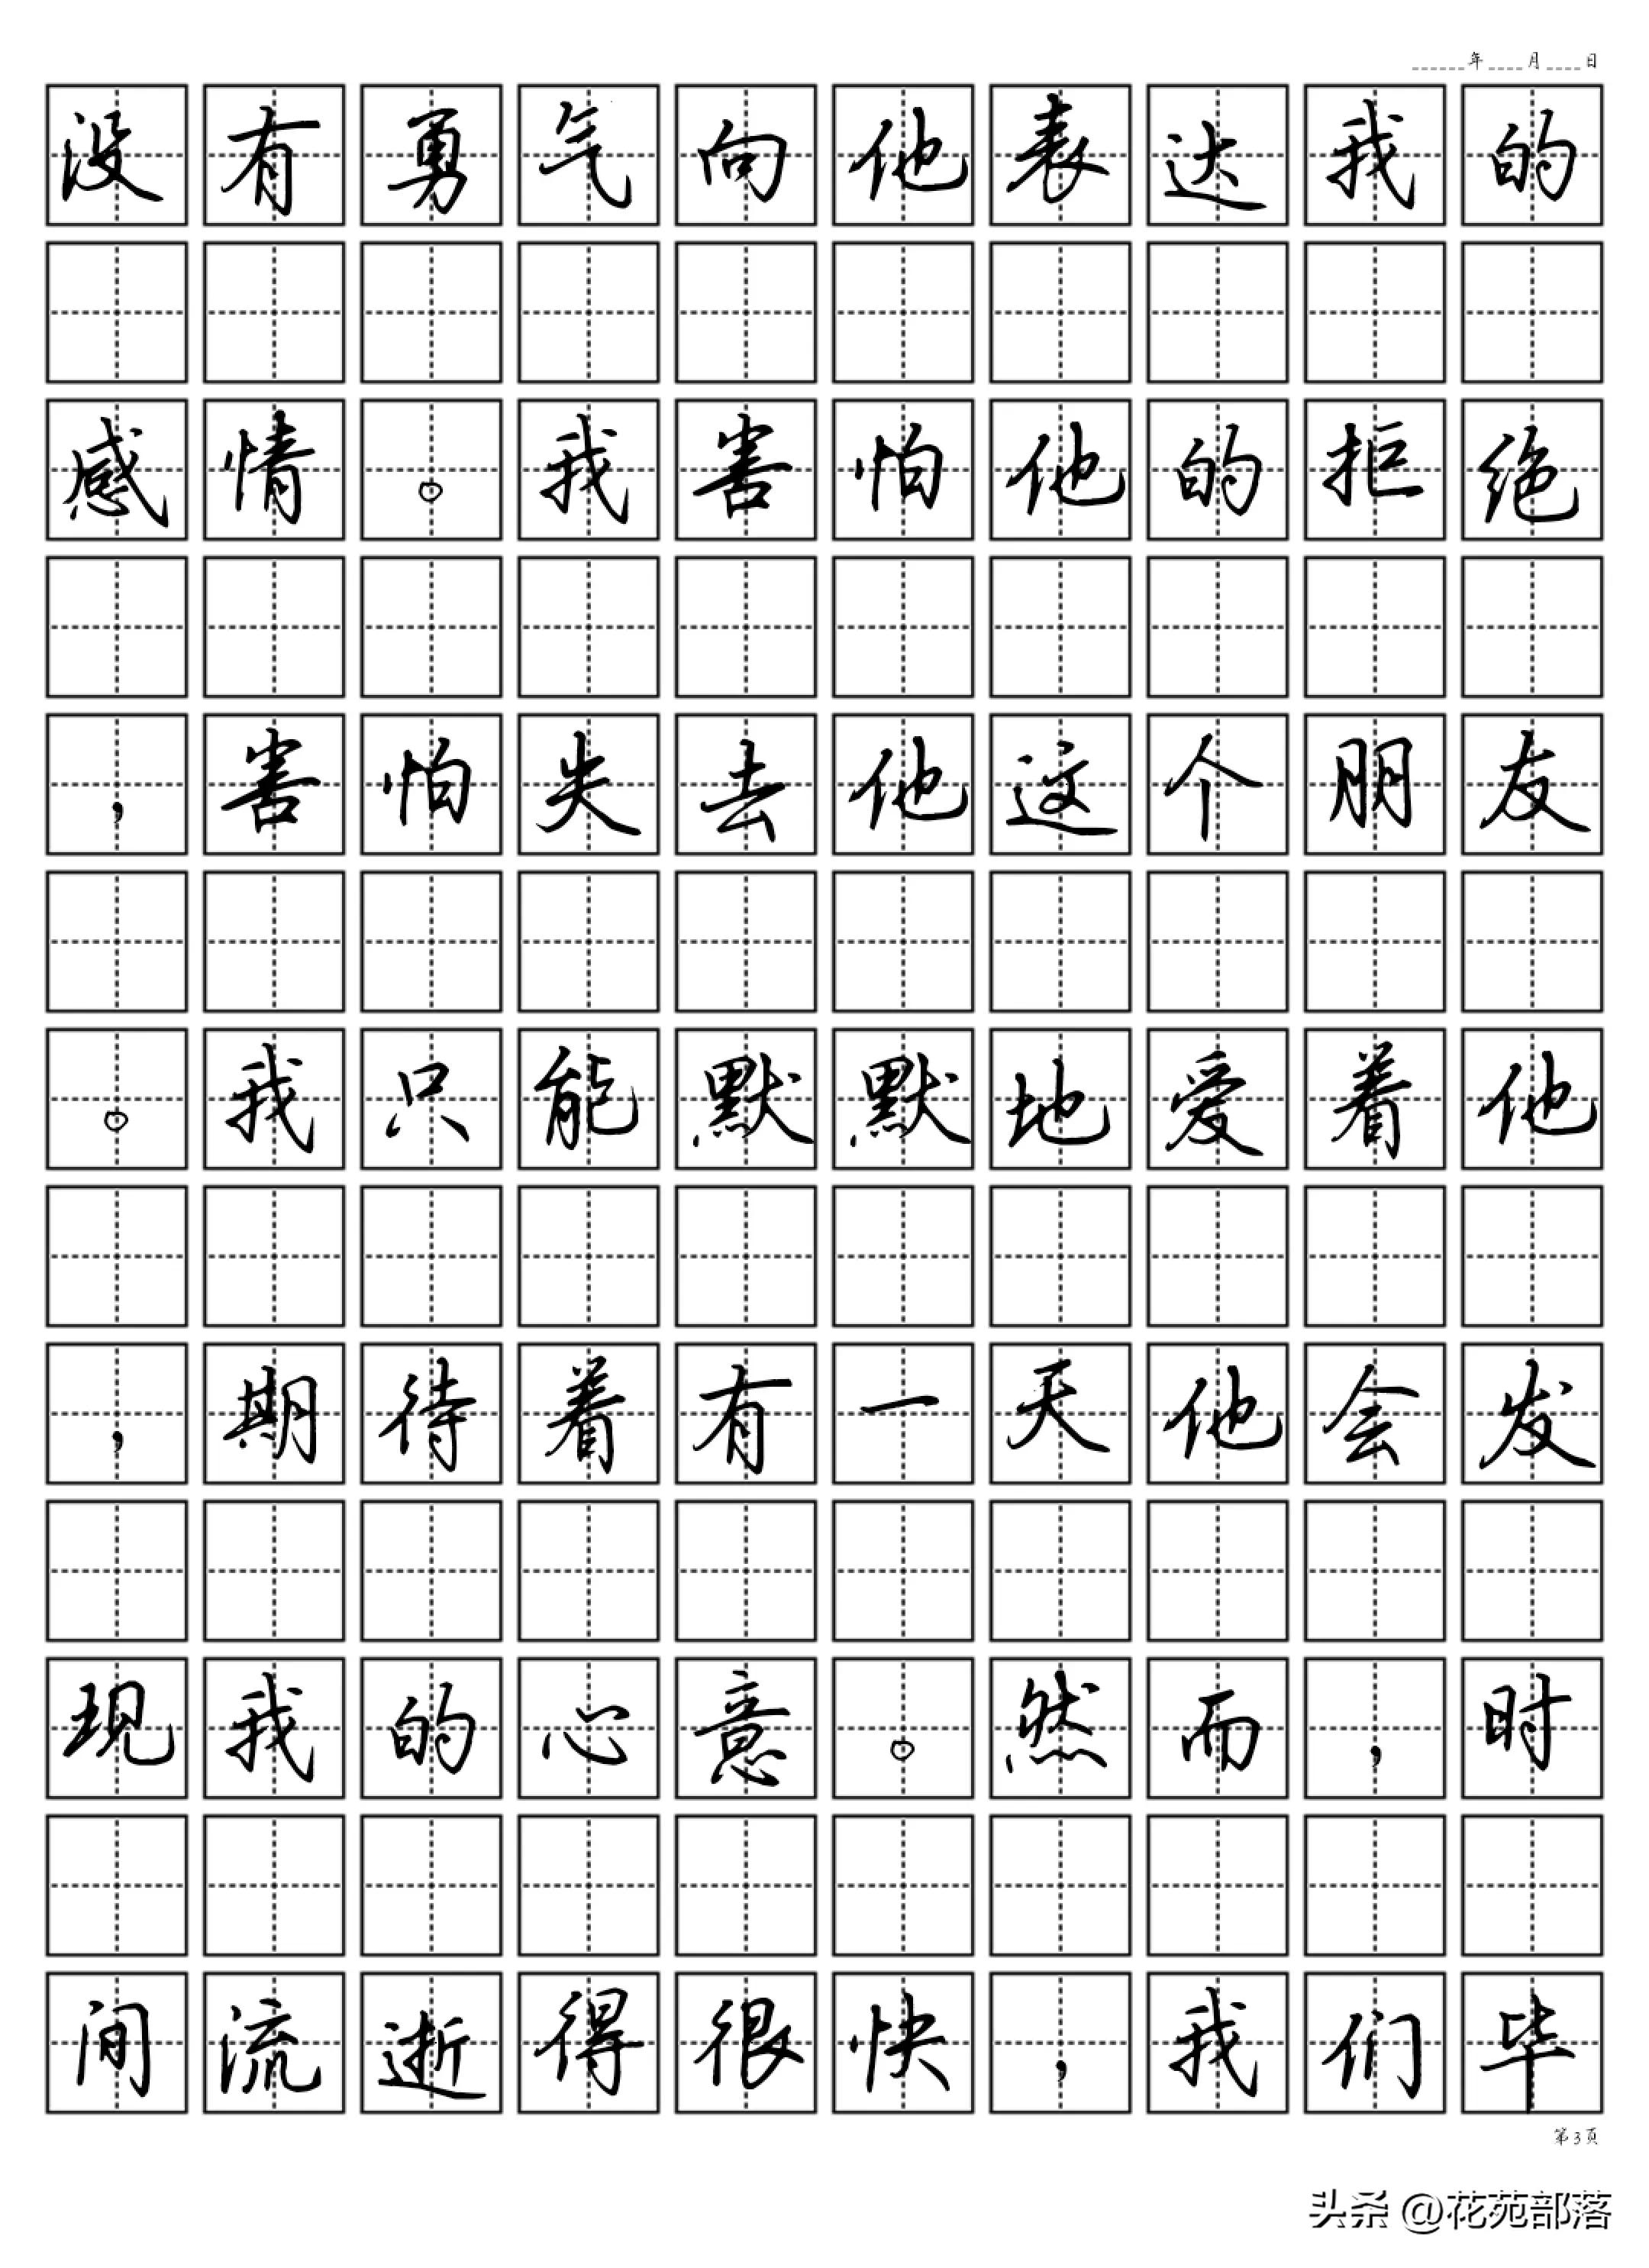 年 月 日
没有勇气向他表达我的
感情。我害怕他的拒绝
，害怕失去他这个朋友
。我只能默默地爱着他
，期待着有一天他会发
现我的心意。然而，时
间流逝得很快，我们毕
第3页
头条 @花苑部落